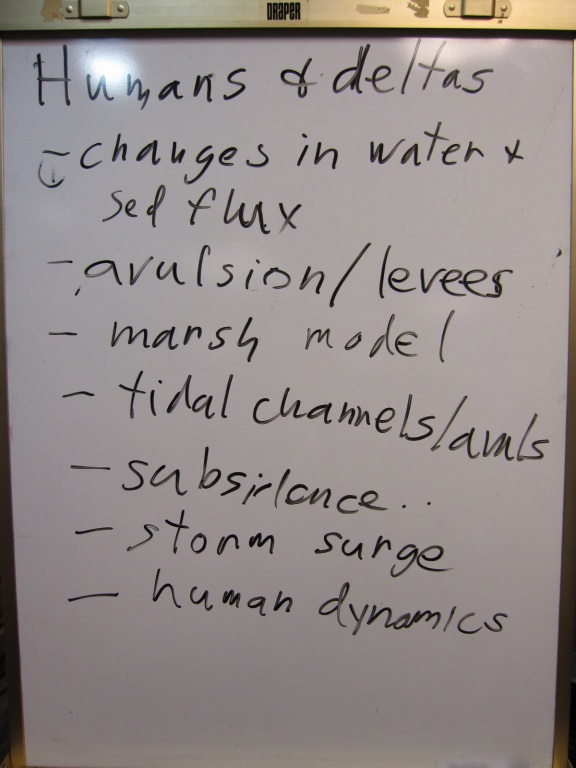 DRAPER
Humans & deltas
- changes in water +
sed flux
- avulsion/levees
- marsh model
- tidal channels/avuls
- subsidence..
- storm surge
- human dynamics